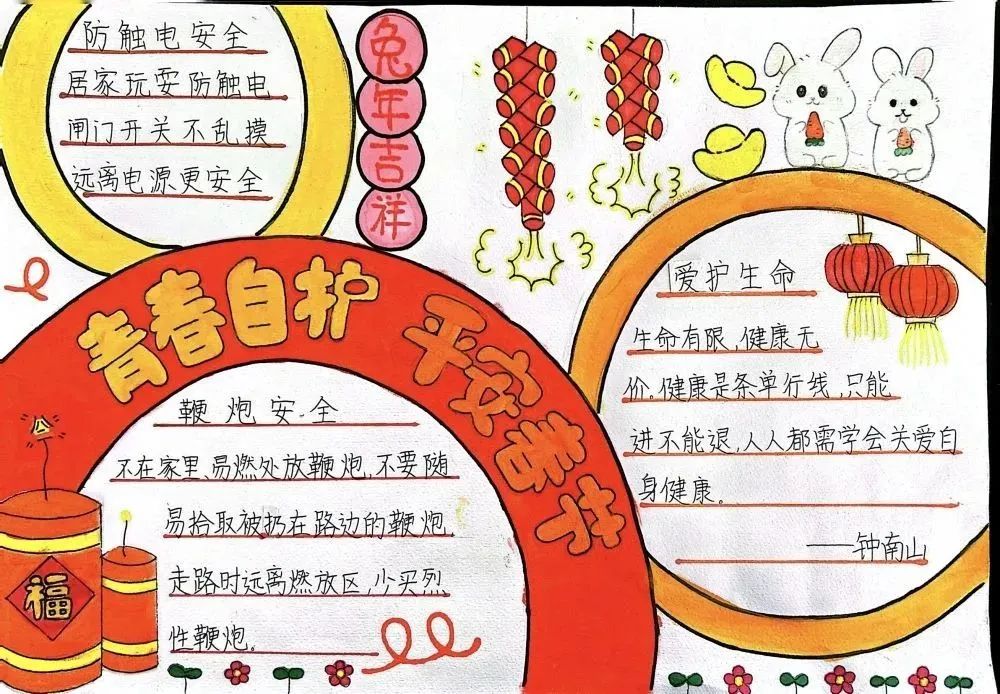 防触电安全
居家玩耍防触电
闸门开关不乱摸
远离电源更安全
兔年吉祥
青春自护 平安春节
鞭炮安全
不在家里、易燃处放鞭炮,不要随
易拾取被扔在路边的鞭炮.
走路时远离燃放区,少买烈
性鞭炮。
福
爱护生命
生命有限,健康无
价。健康是条单行线,只能
进不能退,人人都需学会关爱自
身健康。
——钟南山